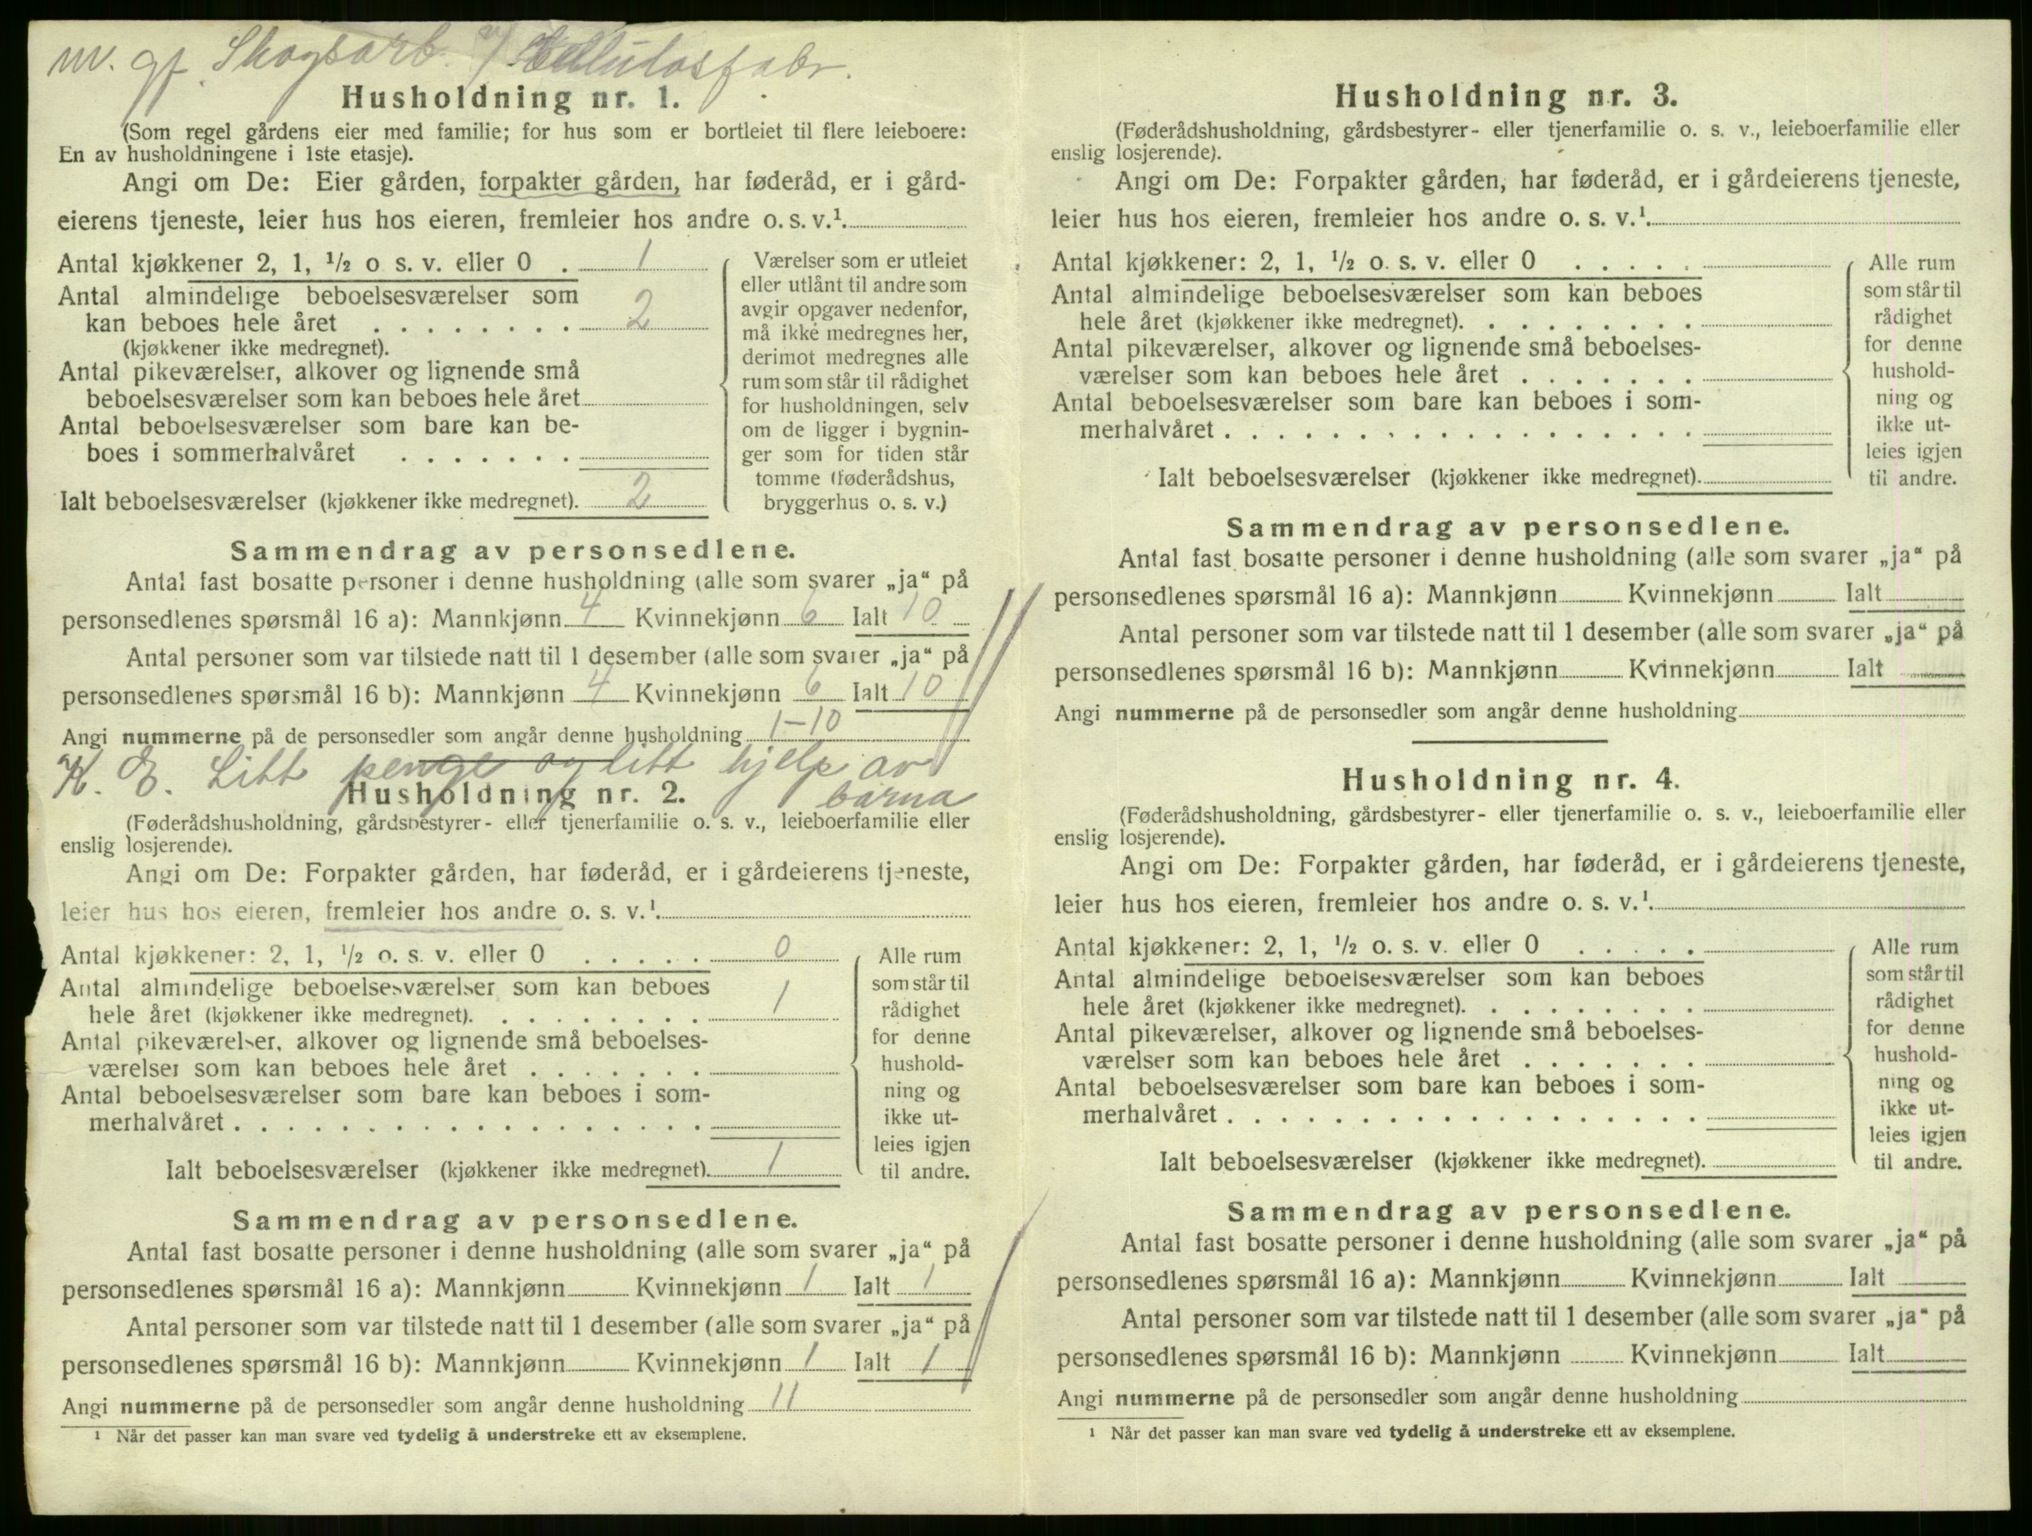 m. gf. Skogsarb. v/ Cellulosfabr.
Husholdning nr. 1.
(Som regel gårdens eier med familie; for hus som er bortleiet til flere leieboere:
En av husholdningene i 1ste etasje).
Angi om De: Eier gården, forpakter gården, har føderåd, er i gård-
eierens tjeneste, leier hus hos eieren, fremleier hos andre o. s. v.¹.
Antal kjøkkener 2, 1, ½ o s. v. eller 0 . 1
Antal almindelige beboelsesværelser som
kan beboes hele året . . . . . . . . 2
(kjøkkener ikke medregnet).
Antal pikeværelser, alkover og lignende små
beboelsesværelser som kan beboes hele året
Antal beboelsesværelser som bare kan be-
boes i sommerhalvåret . . . . . . .
Ialt beboelsesværelser (kjøkkener ikke medregnet). 2
Værelser som er utleiet
eller utlånt til andre som
avgir opgaver nedenfor,
må ikke medregnes her,
derimot medregnes alle
rum som står til rådighet
for husholdningen, selv
om de ligger i bygnin-
ger som for tiden står
tomme (føderådshus,
bryggerhus o. s. v.)
Sammendrag av personsedlene.
Antal fast bosatte personer i denne husholdning (alle som svarer „ja“ på
personsedlenes spørsmål 16 a): Mannkjønn 4 Kvinnekjønn 6 Ialt 10
Antal personer som var tilstede natt til 1 desember (alle som svarer „ja“ på
personsedlenes spørsmål 16 b): Mannkjønn 4 Kvinnekjønn 6 Ialt 10
Angi nummerne på de personsedler som angår denne husholdning 1-10
K. E. Litt penge og litt hjelp av
barna
Husholdning nr. 2.
(Føderådshusholdning, gårdsbestyrer- eller tjenerfamilie o. s. v., leieboerfamilie eller
enslig losjerende).
Angi om De: Forpakter gården, har føderåd, er i gårdeierens tjeneste,
leier hus hos eieren, fremleier hos andre o. s. v.¹.
Antal kjøkkener: 2, 1, ½ o. s. v. eller 0 . . . . . 0
Antal almindelige beboelsesværelser som kan beboes
hele året (kjøkkener ikke medregnet). . . . . . . . . 1
Antal pikeværelser, alkover og lignende små beboelses-
værelser som kan beboes hele året . . . . . . .
Antal beboelsesværelser som bare kan beboes i som-
merhalvåret . . . . . . . . . . . . . . . . . .
Ialt beboelsesværelser (kjøkkener ikke medregnet). 1
Alle rum
som står til
rådighet
for denne
hushold-
ning og
ikke ut-
leies igjen
til andre.
Sammendrag av personsedlene.
Antal fast bosatte personer i denne husholdning (alle som svarer „ja“ på
personsedlenes spørsmål 16 a): Mannkjønn Kvinnekjønn 1 Ialt 1
Antal personer som var tilstede natt til 1 desember (alle som svarer „ja“ på
personsedlenes spørsmål 16 b): Mannkjønn Kvinnekjønn 1 Ialt 1
Angi nummerne på de personsedler som angår denne husholdning 11
¹ Når det passer kan man svare ved tydelig å understreke ett av eksemplene.
Husholdning nr. 3.
(Føderådshusholdning, gårdsbestyrer- eller tjenerfamilie o. s. v., leieboerfamilie eller
enslig losjerende).
Angi om De: Forpakter gården, har føderåd, er i gårdeierens tjeneste,
leier hus hos eieren, fremleier hos andre o. s. v.¹.
Antal kjøkkener: 2, 1, ½ o. s. v. eller 0 . . . . .
Antal almindelige beboelsesværelser som kan beboes
hele året (kjøkkener ikke medregnet). . . . . . . . .
Antal pikeværelser, alkover og lignende små beboelses-
værelser som kan beboes hele året . . . . . . .
Antal beboelsesværelser som bare kan beboes i som-
merhalvåret . . . . . . . . . . . . . . . . . .
Ialt beboelsesværelser (kjøkkener ikke medregnet).
Alle rum
som står til
rådighet
for denne
hushold-
ning og
ikke ut-
leies igjen
til andre.
Sammendrag av personsedlene.
Antal fast bosatte personer i denne husholdning (alle som svarer „ja“ på
personsedlenes spørsmål 16 a): Mannkjønn Kvinnekjønn Ialt
Antal personer som var tilstede natt til 1 desember (alle som svarer „ja“ på
personsedlenes spørsmål 16 b): Mannkjønn Kvinnekjønn Ialt
Angi nummerne på de personsedler som angår denne husholdning
Husholdning nr. 4.
(Føderådshusholdning, gårdsbestyrer- eller tjenerfamilie o. s. v., leieboerfamilie eller
enslig losjerende).
Angi om De: Forpakter gården, har føderåd, er i gårdeierens tjeneste,
leier hus hos eieren, fremleier hos andre o. s. v.¹.
Antal kjøkkener: 2, 1, ½ o. s. v. eller 0 . . . . .
Antal almindelige beboelsesværelser som kan beboes
hele året (kjøkkener ikke medregnet). . . . . . . . .
Antal pikeværelser, alkover og lignende små beboelses-
værelser som kan beboes hele året . . . . . . .
Antal beboelsesværelser som bare kan beboes i som-
merhalvåret . . . . . . . . . . . . . . . . . .
Ialt beboelsesværelser (kjøkkener ikke medregnet).
Alle rum
som står til
rådighet
for denne
hushold-
ning og
ikke ut-
leies igjen
til andre.
Sammendrag av personsedlene.
Antal fast bosatte personer i denne husholdning (alle som svarer „ja“ på
personsedlenes spørsmål 16 a): Mannkjønn Kvinnekjønn Ialt
Antal personer som var tilstede natt til 1 desember (alle som svarer „ja“ på
personsedlenes spørsmål 16 b): Mannkjønn Kvinnekjønn Ialt
Angi nummerne på de personsedler som angår denne husholdning
¹ Når det passer kan man svare ved tydelig å understreke ett av eksemplene.